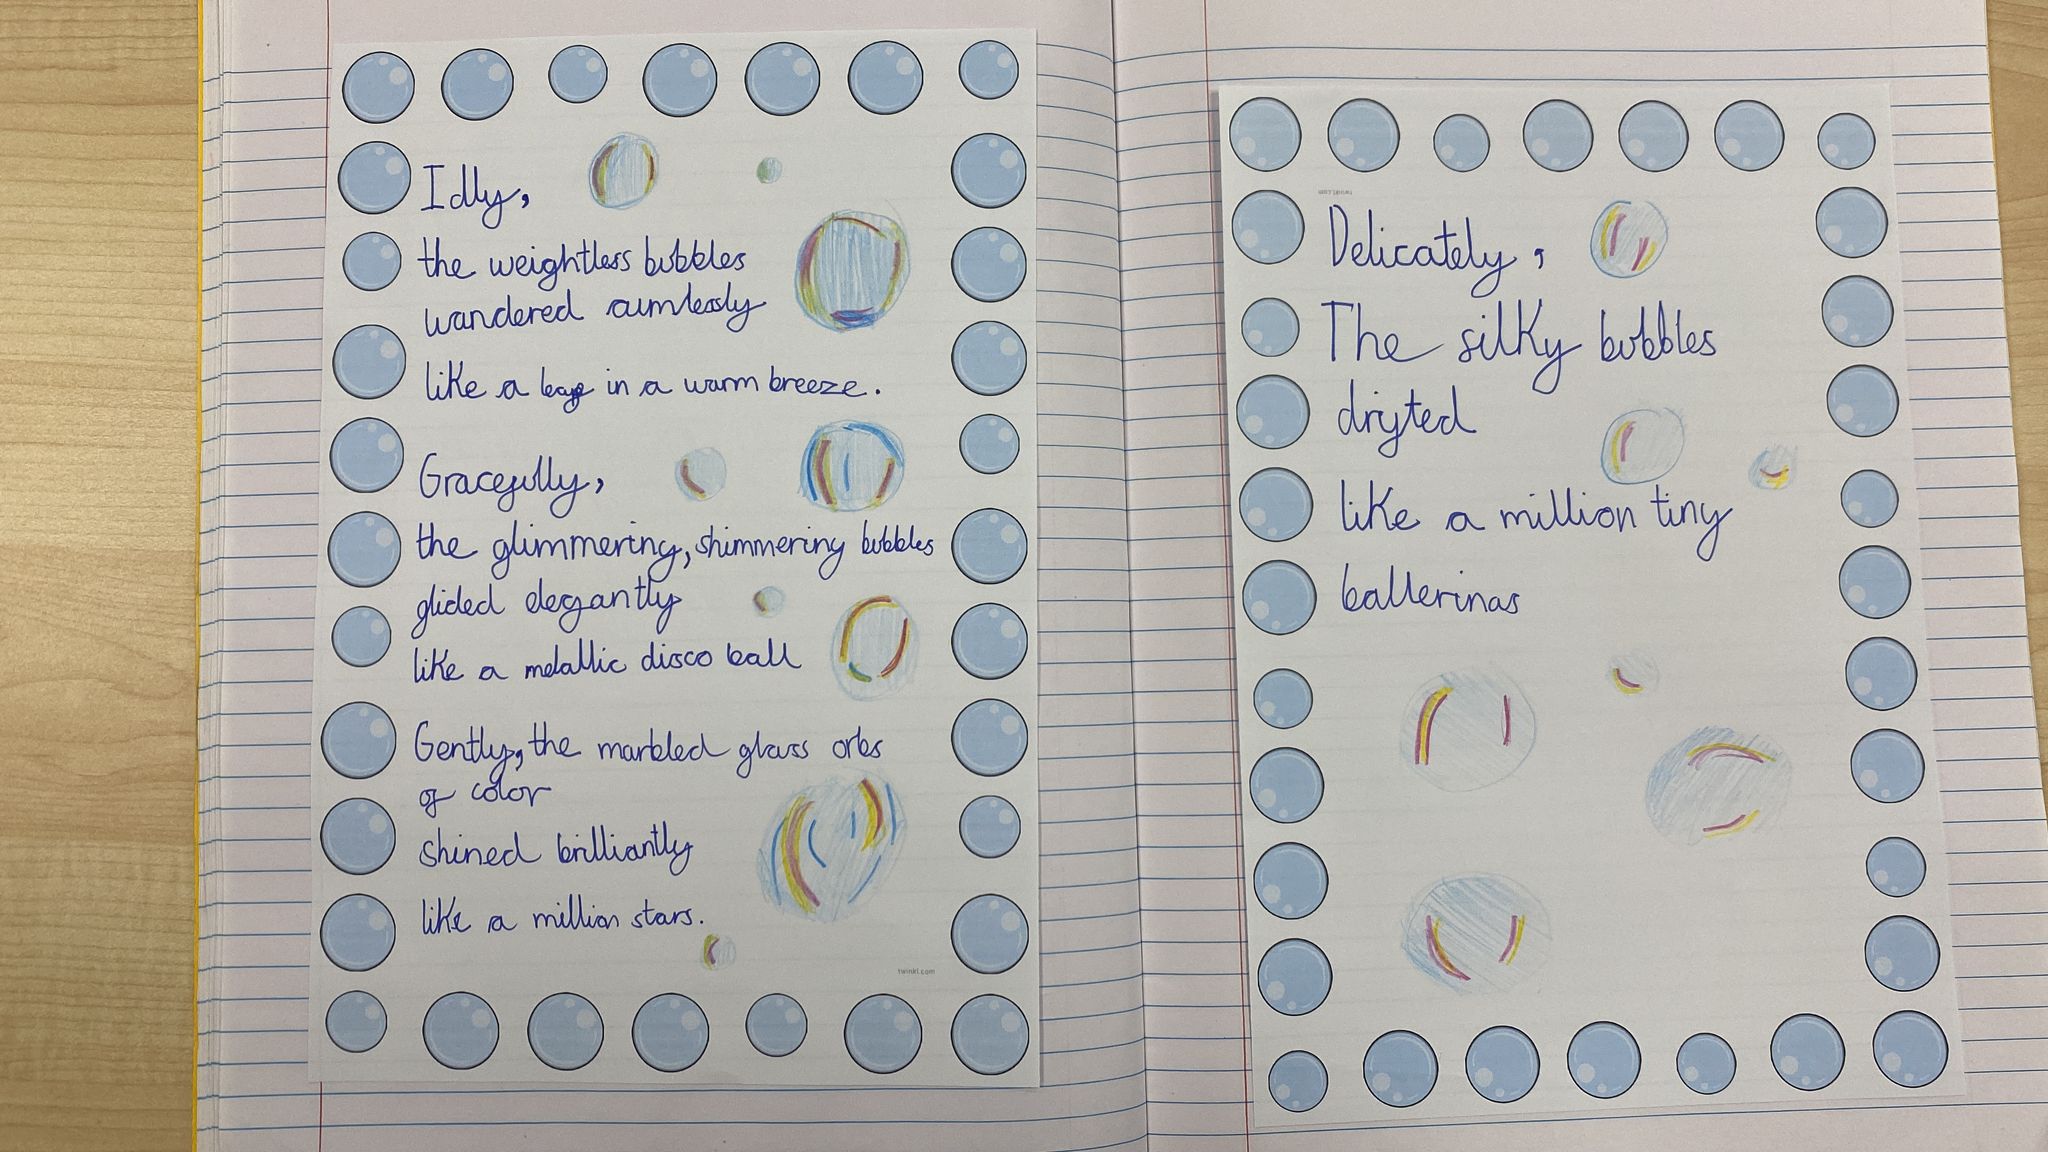 Idly,
the weightless bubbles
wandered aimlessly
like a leaf in a warm breeze.
Gracefully,
the glimmering, shimmering bubbles
glided elegantly
like a metallic disco ball
Gently, the marbled glass orbs
of color
shined brilliantly
like a million stars.
twinkl.com
twinkl.com
Delicately,
The silky bubbles
drifted
like a million tiny
ballerinas